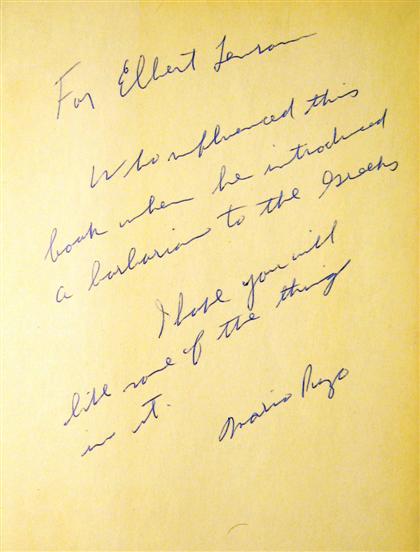 For Elbert Lenrow
Who influenced this
book when he introduced
a barbarian to the Greeks
I hope you will
like some of the things
in it.
Mario Puzo